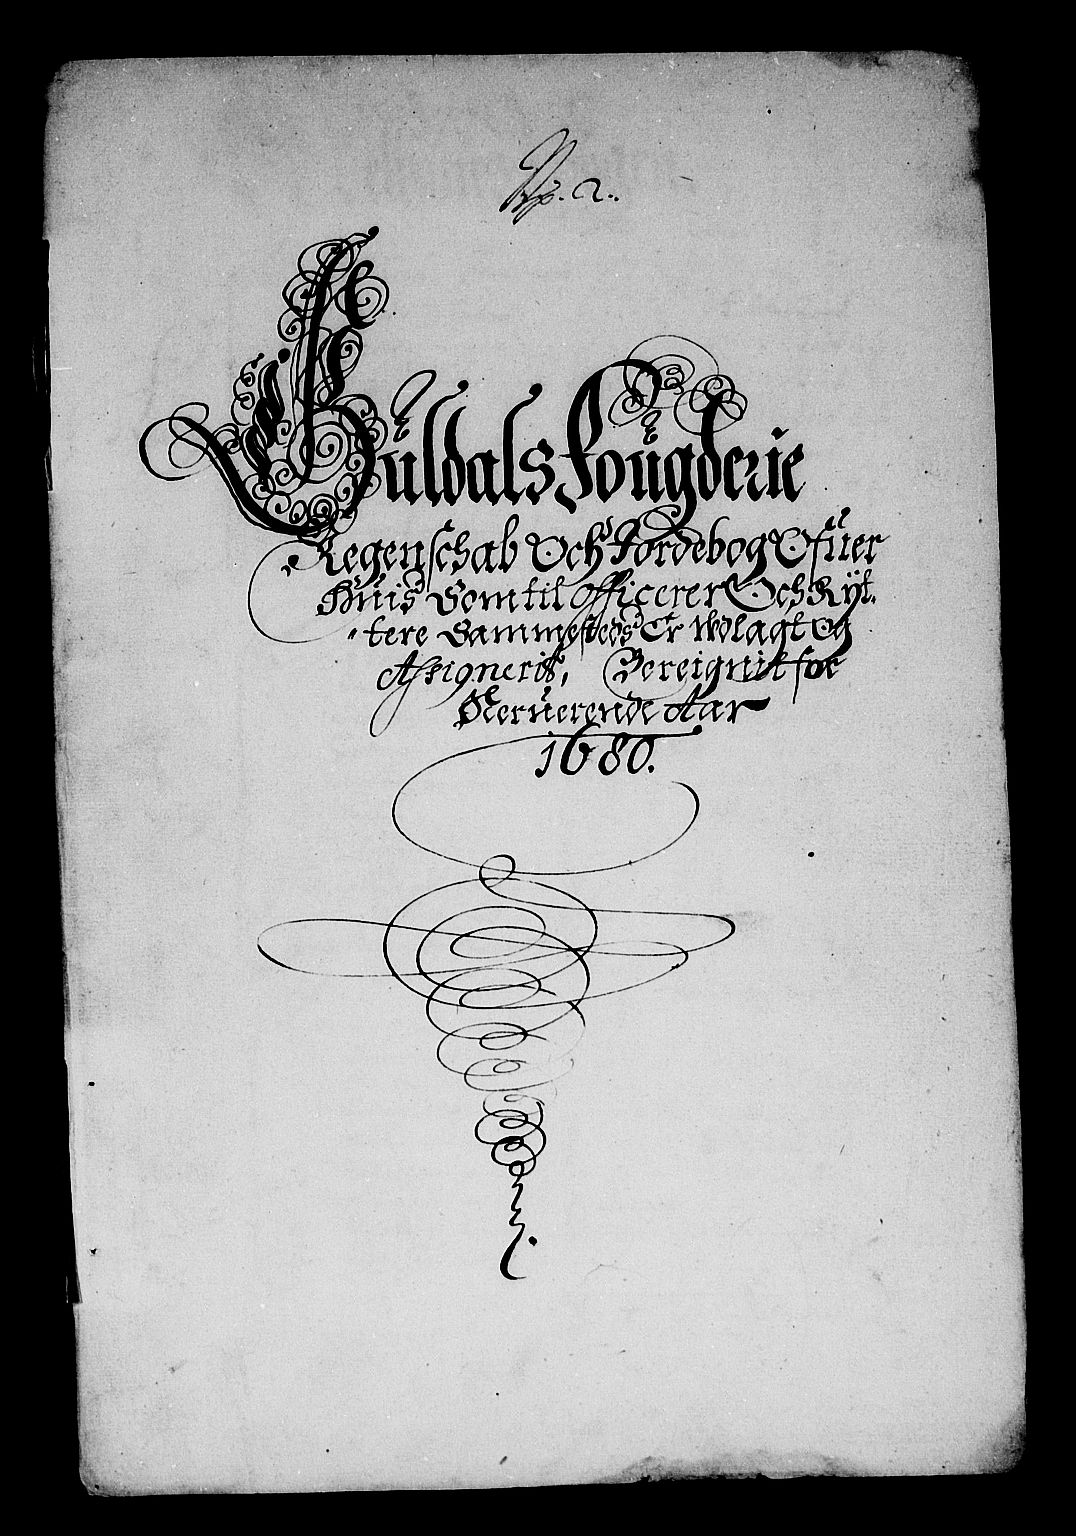 No. 2.
Guldals Fougderie
Regenschab Och Jordebog Ofuer
Huis Som til Officerer Och Ryt-
tere Sammesteds Er Udlagt og
Assignerit, Bereignit for
Neruerende Aar
1680.